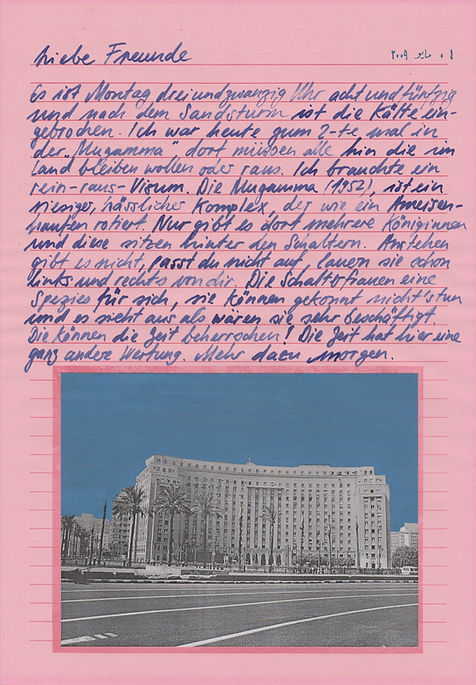 Liebe Freunde
مايو ٢٠٠٩
Es ist Montag dreiundzwanzig Uhr acht und fünfzig
und nach dem Sandsturm ist die Kälte ein-
gebrochen. Ich war heute zum 2-te mal in
der „Mugamma" dort müssen alle hin die im
Land bleiben wollen oder raus. Ich brauchte ein
rein-raus-Visum. Die Mugamma (1952), ist ein
riesiger, hässlicher Komplex, der wie ein Ameisen-
haufen rotiert. Nur gibt es dort mehrere Königinnen
und diese sitzen hinter den Schaltern. Anstehen
gibt es nicht, passt du nicht auf, lauern sie schon
links und rechts von dir. Die Schaltefrauen eine
Spezies für sich, sie können gekonnt nicht's tun
und es sieht aus als wären sie sehr beschäftigt.
Die können die Zeit beherrschen! Die Zeit hat hier eine
ganz andere Wertung. Mehr dazu morgen.